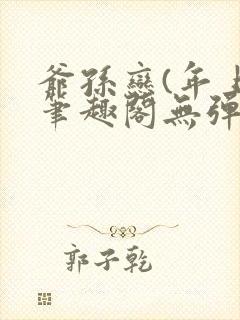 爺孫戀(年上
筆趣閣無彈
郭子乾